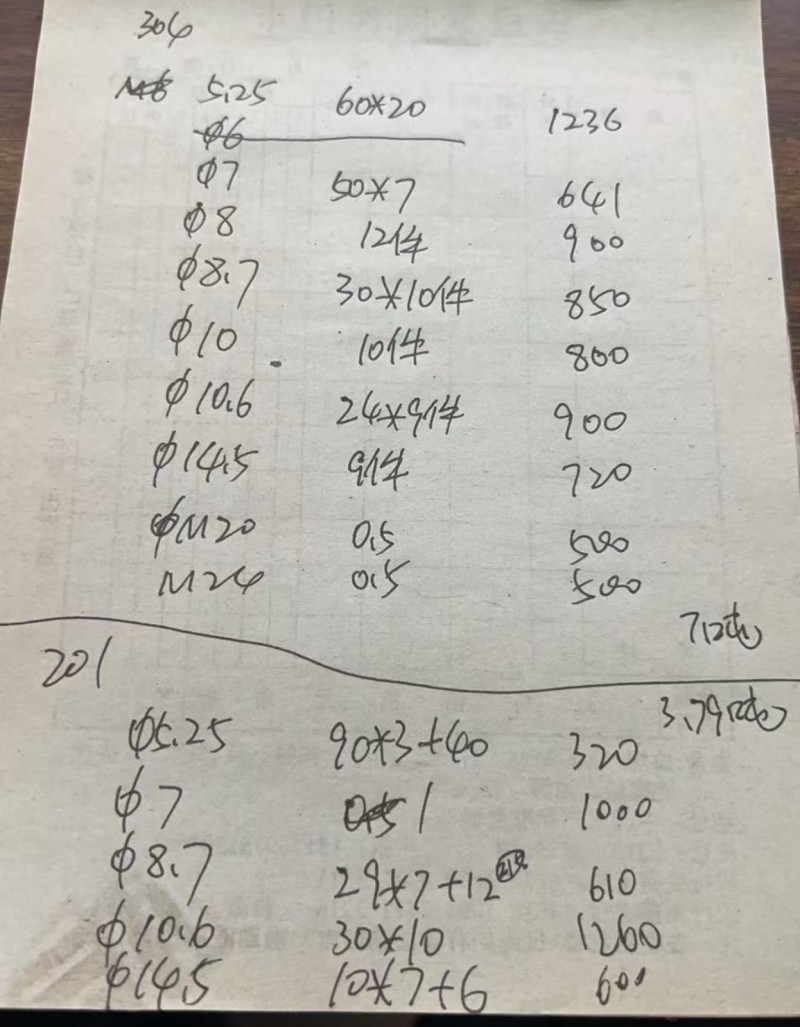 304
5.25 60*20 1236
φ6
φ7 50*7 641
φ8 12件 900
φ8.7 30*10件 850
φ10 10件 800
φ10.6 24*9件 900
φ14.5 9件 720
φM20 0.5 500
M24 0.5 500
7.12吨
201
3.79吨
φ5.25 90*3+40 320
φ7 1 1000
φ8.7 29*7+12 610
φ10.6 30*10 1260
φ14.5 10*7+6 600